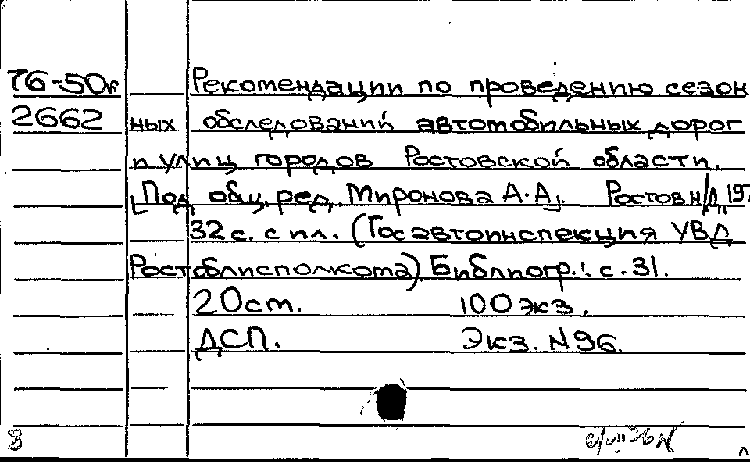 76-50к Рекомендации по проведению сезон
2662 ных обследований автомобильных дорог
и улиц городов Ростовской области.
[Под общ. ред. Миронова А.А]. Ростов н/Д, 197
32 с. с ил. (Госавтоинспекция УВД
Ростоблисполкома) Библиогр.: с. 31.
20 см. 100 экз.
ДСП. Экз. N96.